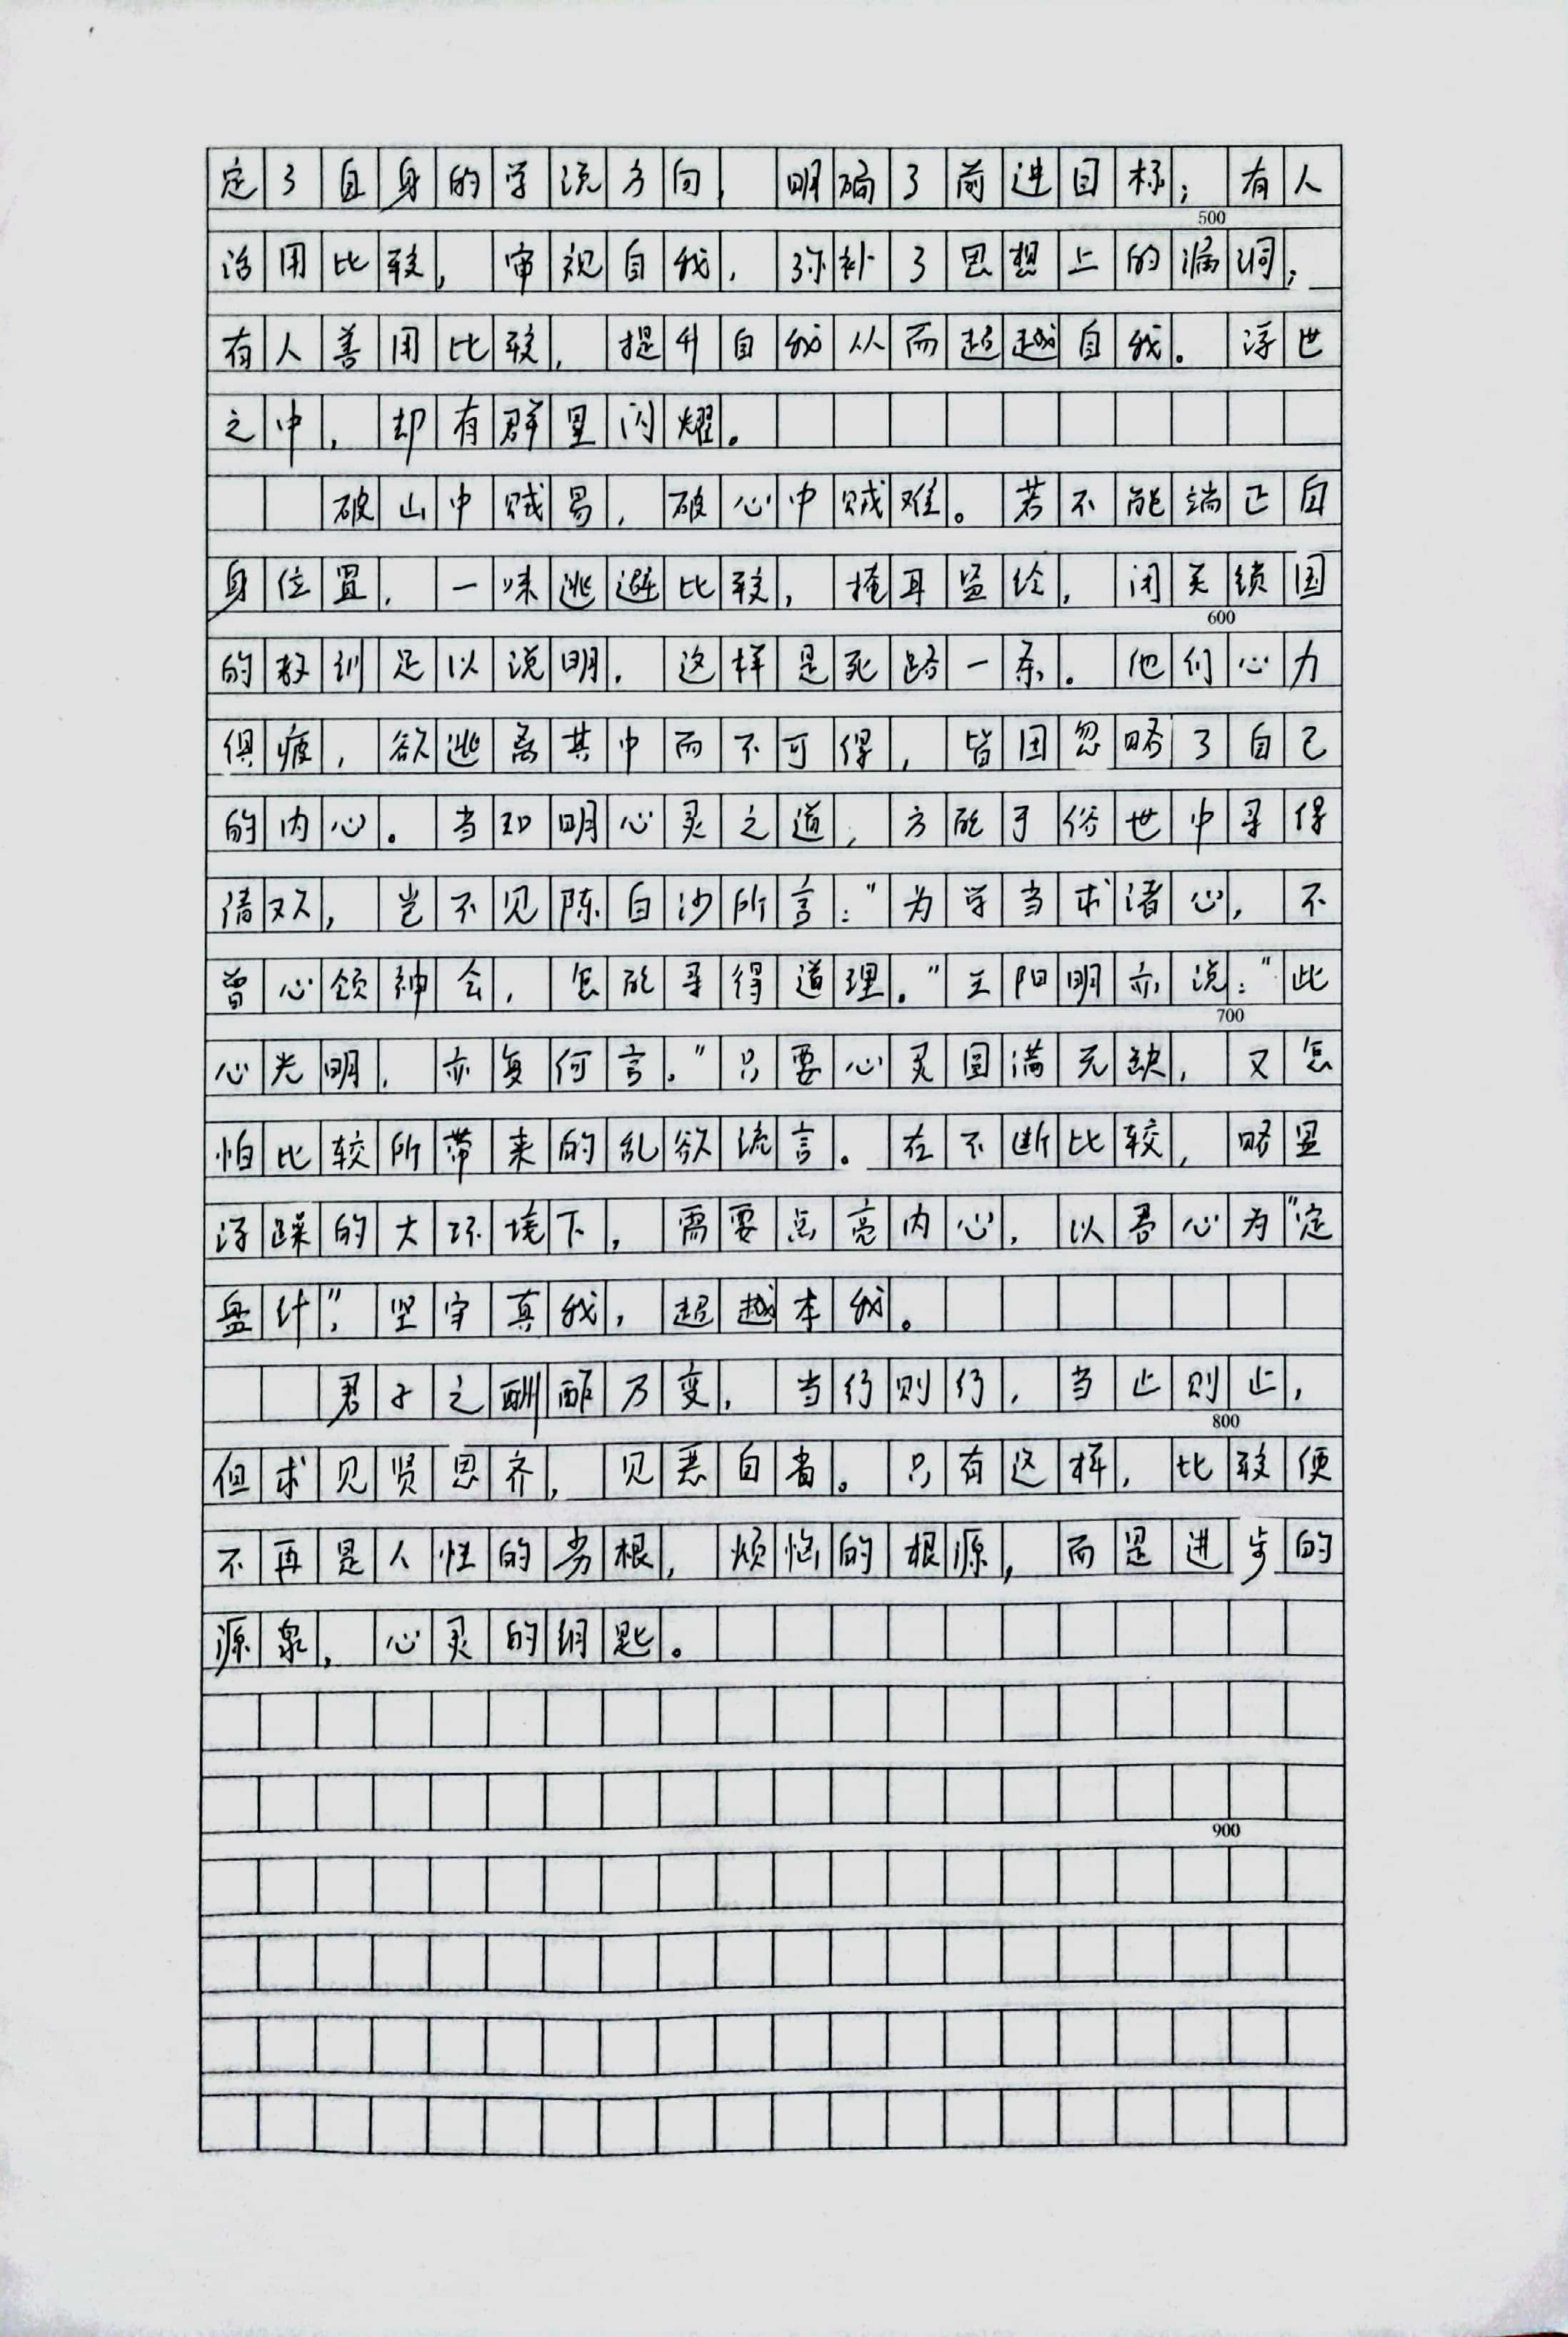 定了自身的学流方向，明确了前进目标；有人
500
活用比较，审视自我，弥补了思想上的漏洞；
有人善用比较，提升自我从而超越自我。浮世
之中，却有群星闪耀。
破山中贼易，破心中贼难。若不能端正自
身位置，一味逃避比较，掩耳盗铃，闭关锁国
600
的教训足以说明，这样是死路一条。他们心力
俱疲，欲逃离其中而不可得，皆因忽略了自己
的内心。当知明心灵之道，方能于俗世中寻得
清欢，岂不见陈白沙所言：“为学当求诸心，不
曾心领神会，怎能寻得道理。”王阳明亦说：“此
700
心光明，亦复何言。”只要心灵圆满无缺，又怎
怕比较所带来的乱欲流言。在不断比较，略显
浮躁的大环境下，需要点亮内心，以吾心为“定
盘针”，坚守真我，超越本我。
君子之酬酢万变，当行则行，当止则止，
800
但求见贤思齐，见恶自省。只有这样，比较便
不再是人性的劣根，烦恼的根源，而是进步的
源泉，心灵的钥匙。
900